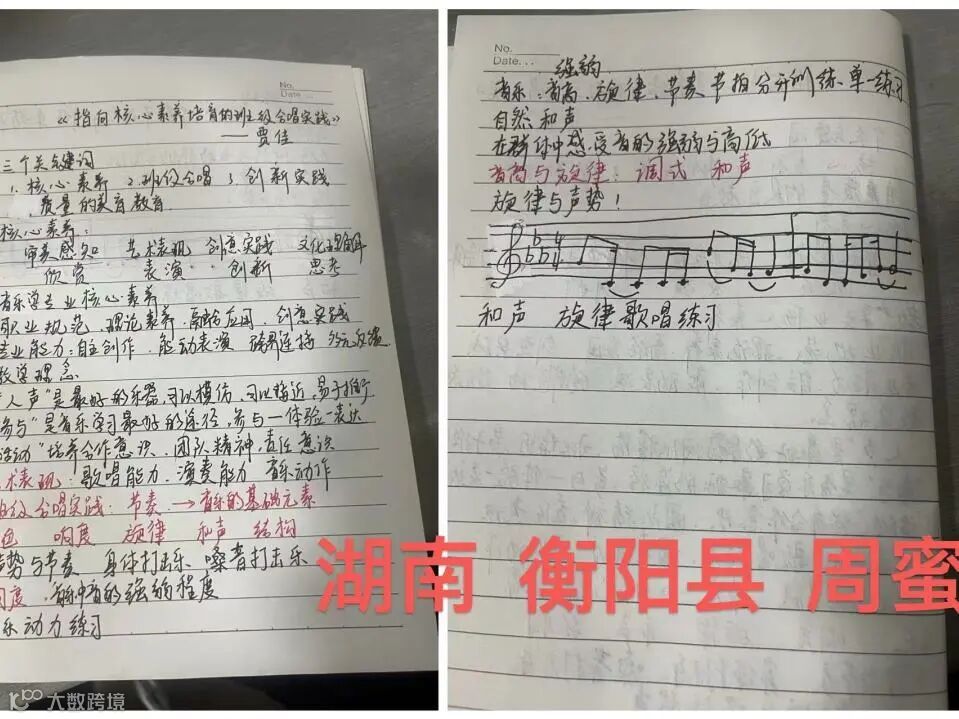 No.
Date...
《指向核心素养培育的班级合唱实践》
——贾佳
三个关键词
1. 核心素养 2. 班级合唱 3. 创新实践
质量的美育教育
核心素养:
审美感知 艺术表现 创意实践 文化理解
欣赏 表演 创新 思考
音乐学专业核心素养
职业规范 理论素养 融合应用 创意实践
专业能力:自主创作 能动表演 跨界连接 多元反馈
教学理念
"人声"是最好的乐器,可以模仿、可以接近,易于推广
参与"是音乐学习最好的途径,参与一体验一表达
活动"培养合作意识、团队精神,责任意识
术表现:歌唱能力、演奏能力 音乐动作
级合唱实践:节奏 → 音乐的基础元素
色 响度 旋律 和声 结构
势与节奏 身体打击乐 嗓音打击乐
度、音乐中音的强弱程度
乐动力练习
No.
Date...
强弱
音乐:音高、旋律、节奏、节拍分开训练、单一练习
自然和声
在群体中感受音的强弱与高低
音高与旋律:调式 和声
旋律与声势!
和声 旋律歌唱练习
湖南 衡阳县 周蜜
大数跨境